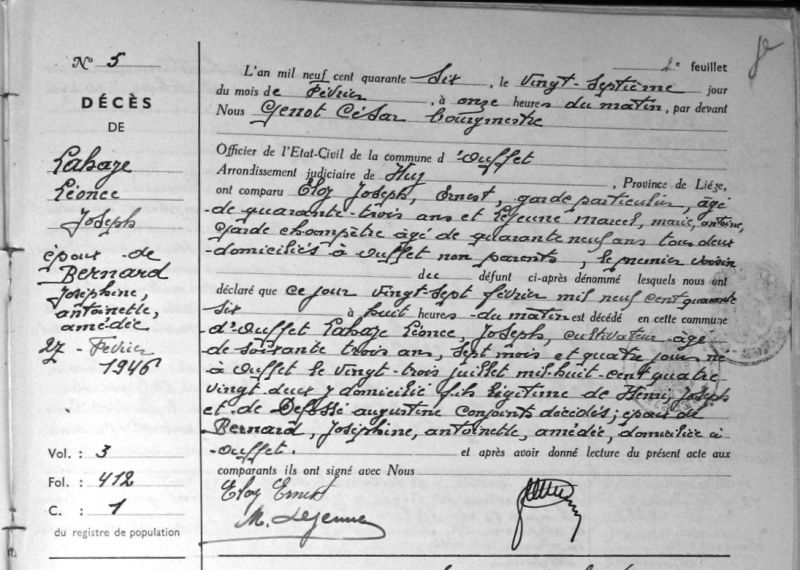 N° 5
DÉCÈS
DE
Lahaye
Léonce
Joseph
époux de
BERNARD
Joséphine,
antoinette,
amédée
27 - Février
1946
Vol. : 3
Fol. : 412
C. : 1
du registre de population
2e feuillet
L'an mil neuf cent quarante six, le vingt-septième jour
du mois de Février, à onze heures du matin, par devant
Nous Genot César bourgmestre
Officier de l'Etat-Civil de la commune d'Ouffet
Arrondissement judiciaire de Huy, Province de Liége,
ont comparu Eloy Joseph, Ernest, garde particulier, âgé
de quarante-trois ans et Lejeune Marcel, marie, antoine,
garde champêtre âgé de quarante neuf ans tous deux
domiciliés à Ouffet non parents, le premier voisin
du défunt ci-après dénommé lesquels nous ont
déclaré que ce jour vingt-sept février mil neuf cent quarante
six à huit heures du matin est décédé en cette commune
d'Ouffet Lahaye Léonce, Joseph, cultivateur âgé
de soixante trois ans, sept mois et quatre jours né
à Ouffet le vingt-trois juillet mil-huit-cent quatre
vingt deux y domicilié fils légitime de Henri, Joseph
et de Defossé augustine conjoints décédés; époux de
Bernard, Joséphine, antoinette, amédée, domiciliée à
Ouffet. et après avoir donné lecture du présent acte aux
comparants ils ont signé avec Nous
Eloy Ernest
M. Lejeune